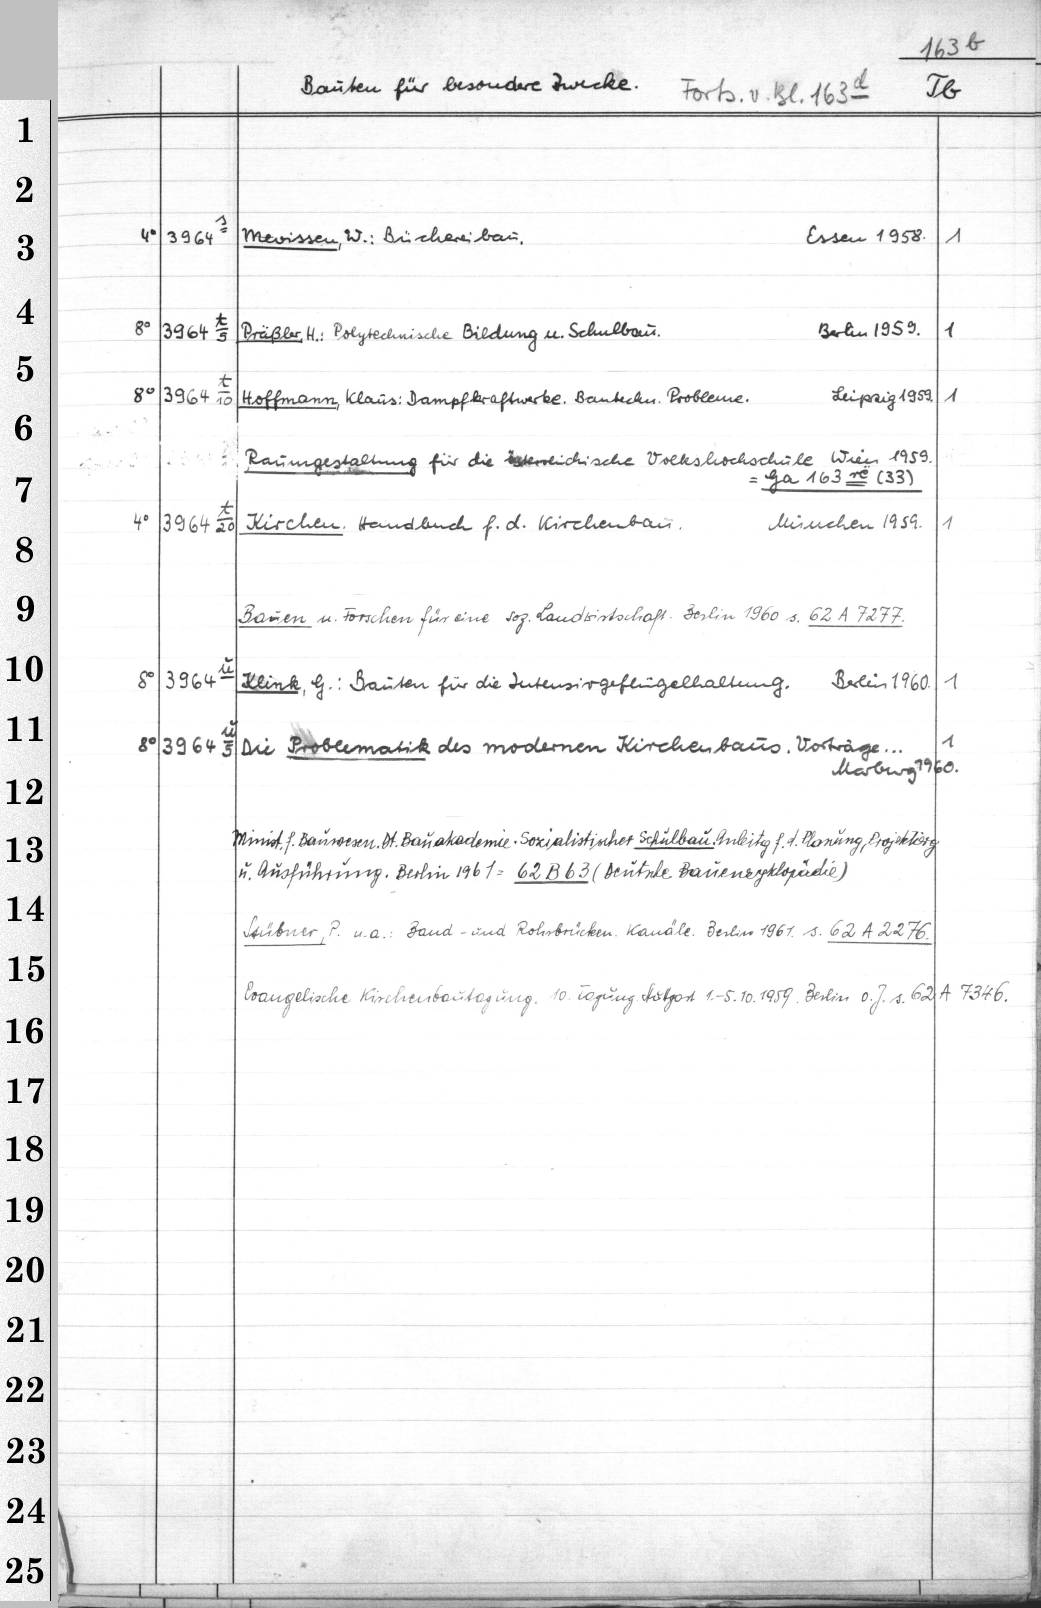 163 b
Bauten für besondere Zwecke. Forts. v. Bl. 163 d Tb
1
2
3 4° 3964 s Mevissen, W.: Büchereibau. Essen 1958. 1
4 8° 3964 t/5 Präßler, H.: Polytechnische Bildung u. Schulbau. Berlin 1959. 1
5
8° 3964 t/10 Hoffmann, Klaus: Dampfkraftwerke. Bautechn. Probleme. Leipzig 1959. 1
6
Raumgestaltung für die österreichische Volkshochschule Wien 1959.
7 = Ga 163 re (33)
4° 3964 t/20 Kirchen. Handbuch f. d. Kirchenbau. München 1959. 1
8
9 Bauen u. Forschen für eine soz. Landwirtschaft. Berlin 1960 s. 62 A 7277.
10 8° 3964 u Klink, G.: Bauten für die Intensivgeflügelhaltung. Berlin 1960. 1
11 8° 3964 u/5 Die Problematik des modernen Kirchenbaus. Vorträge... 1
Marburg 1960.
12
13 Minist. f. Bauwesen. Dt. Bauakademie. Sozialistischer Schulbau. Anleitg f. d. Planung, Projektierg
u. Ausführung. Berlin 1961 = 62 B 63 (Deutsche Bauenzyklopädie)
14
Stübner, P. u.a.: Band- und Rohrbrücken. Kanäle. Berlin 1961. s. 62 A 2276.
15
Evangelische Kirchenbautagung. 10. Tagung Stuttgart 1.-5.10.1959. Berlin o.J. s. 62 A 7346.
16
17
18
19
20
21
22
23
24
25